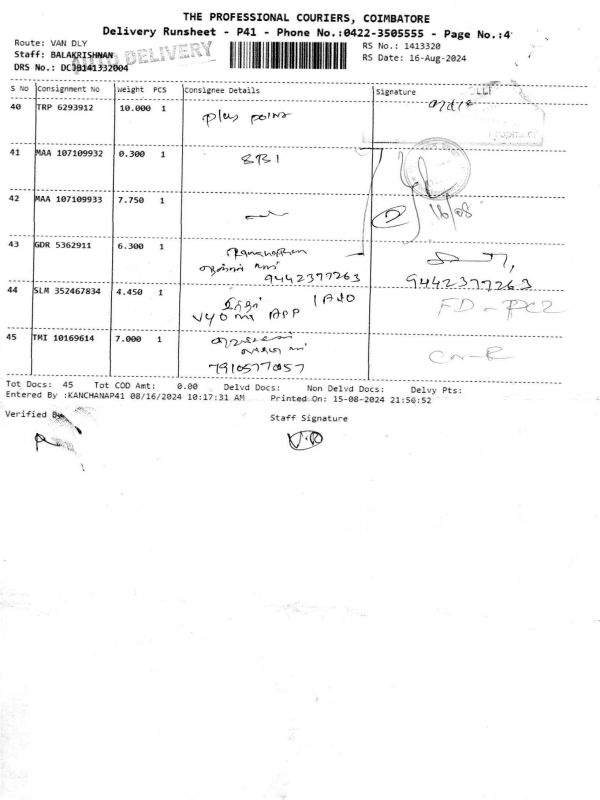 THE PROFESSIONAL COURIERS, COIMBATORE
Delivery Runsheet - P41 - Phone No.:0422-3505555 - Page No.:4
Route: VAN DLY
RS No.: 1413320
Staff: BALAKRISHNAN
AUTO DELIVERY
RS Date: 16-Aug-2024
DRS No.: DCJB141332004
S No Consignment No Weight PCS Consignee Details Signature
40 TRP 6293912 10.000 1 Plus point
41 MAA 107109932 0.300 1 SBI
42 MAA 107109933 7.750 1
2 16/08
43 GDR 5362911 6.300 1
9442377263 9442377263
44 SLM 352467834 4.450 1 FD-PC2
APP
45 TMI 10169614 7.000 1
7910577057
Tot Docs: 45 Tot COD Amt: 0.00 Delvd Docs: Non Delvd Docs: Delvy Pts:
Entered By :KANCHANAP41 08/16/2024 10:17:31 AM Printed On: 15-08-2024 21:56:52
Verified By
Staff Signature
V.R